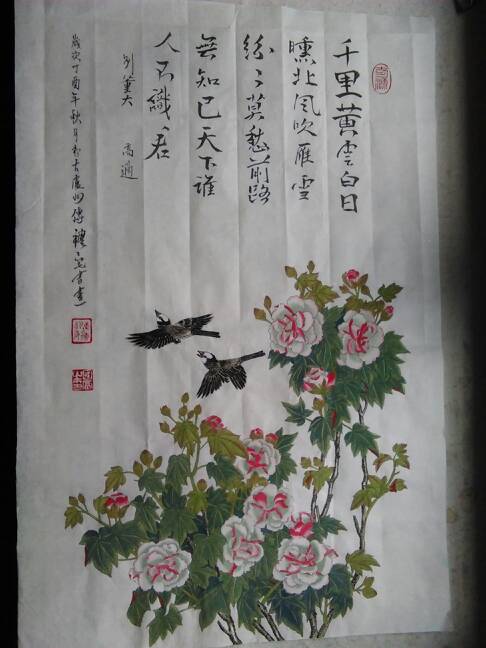 千里黄雲白日
曛北风吹雁雪
紛々莫愁前路
無知已天下誰
人不識君
别董大
高適
歲次丁酉年秋月於古處州 書畫